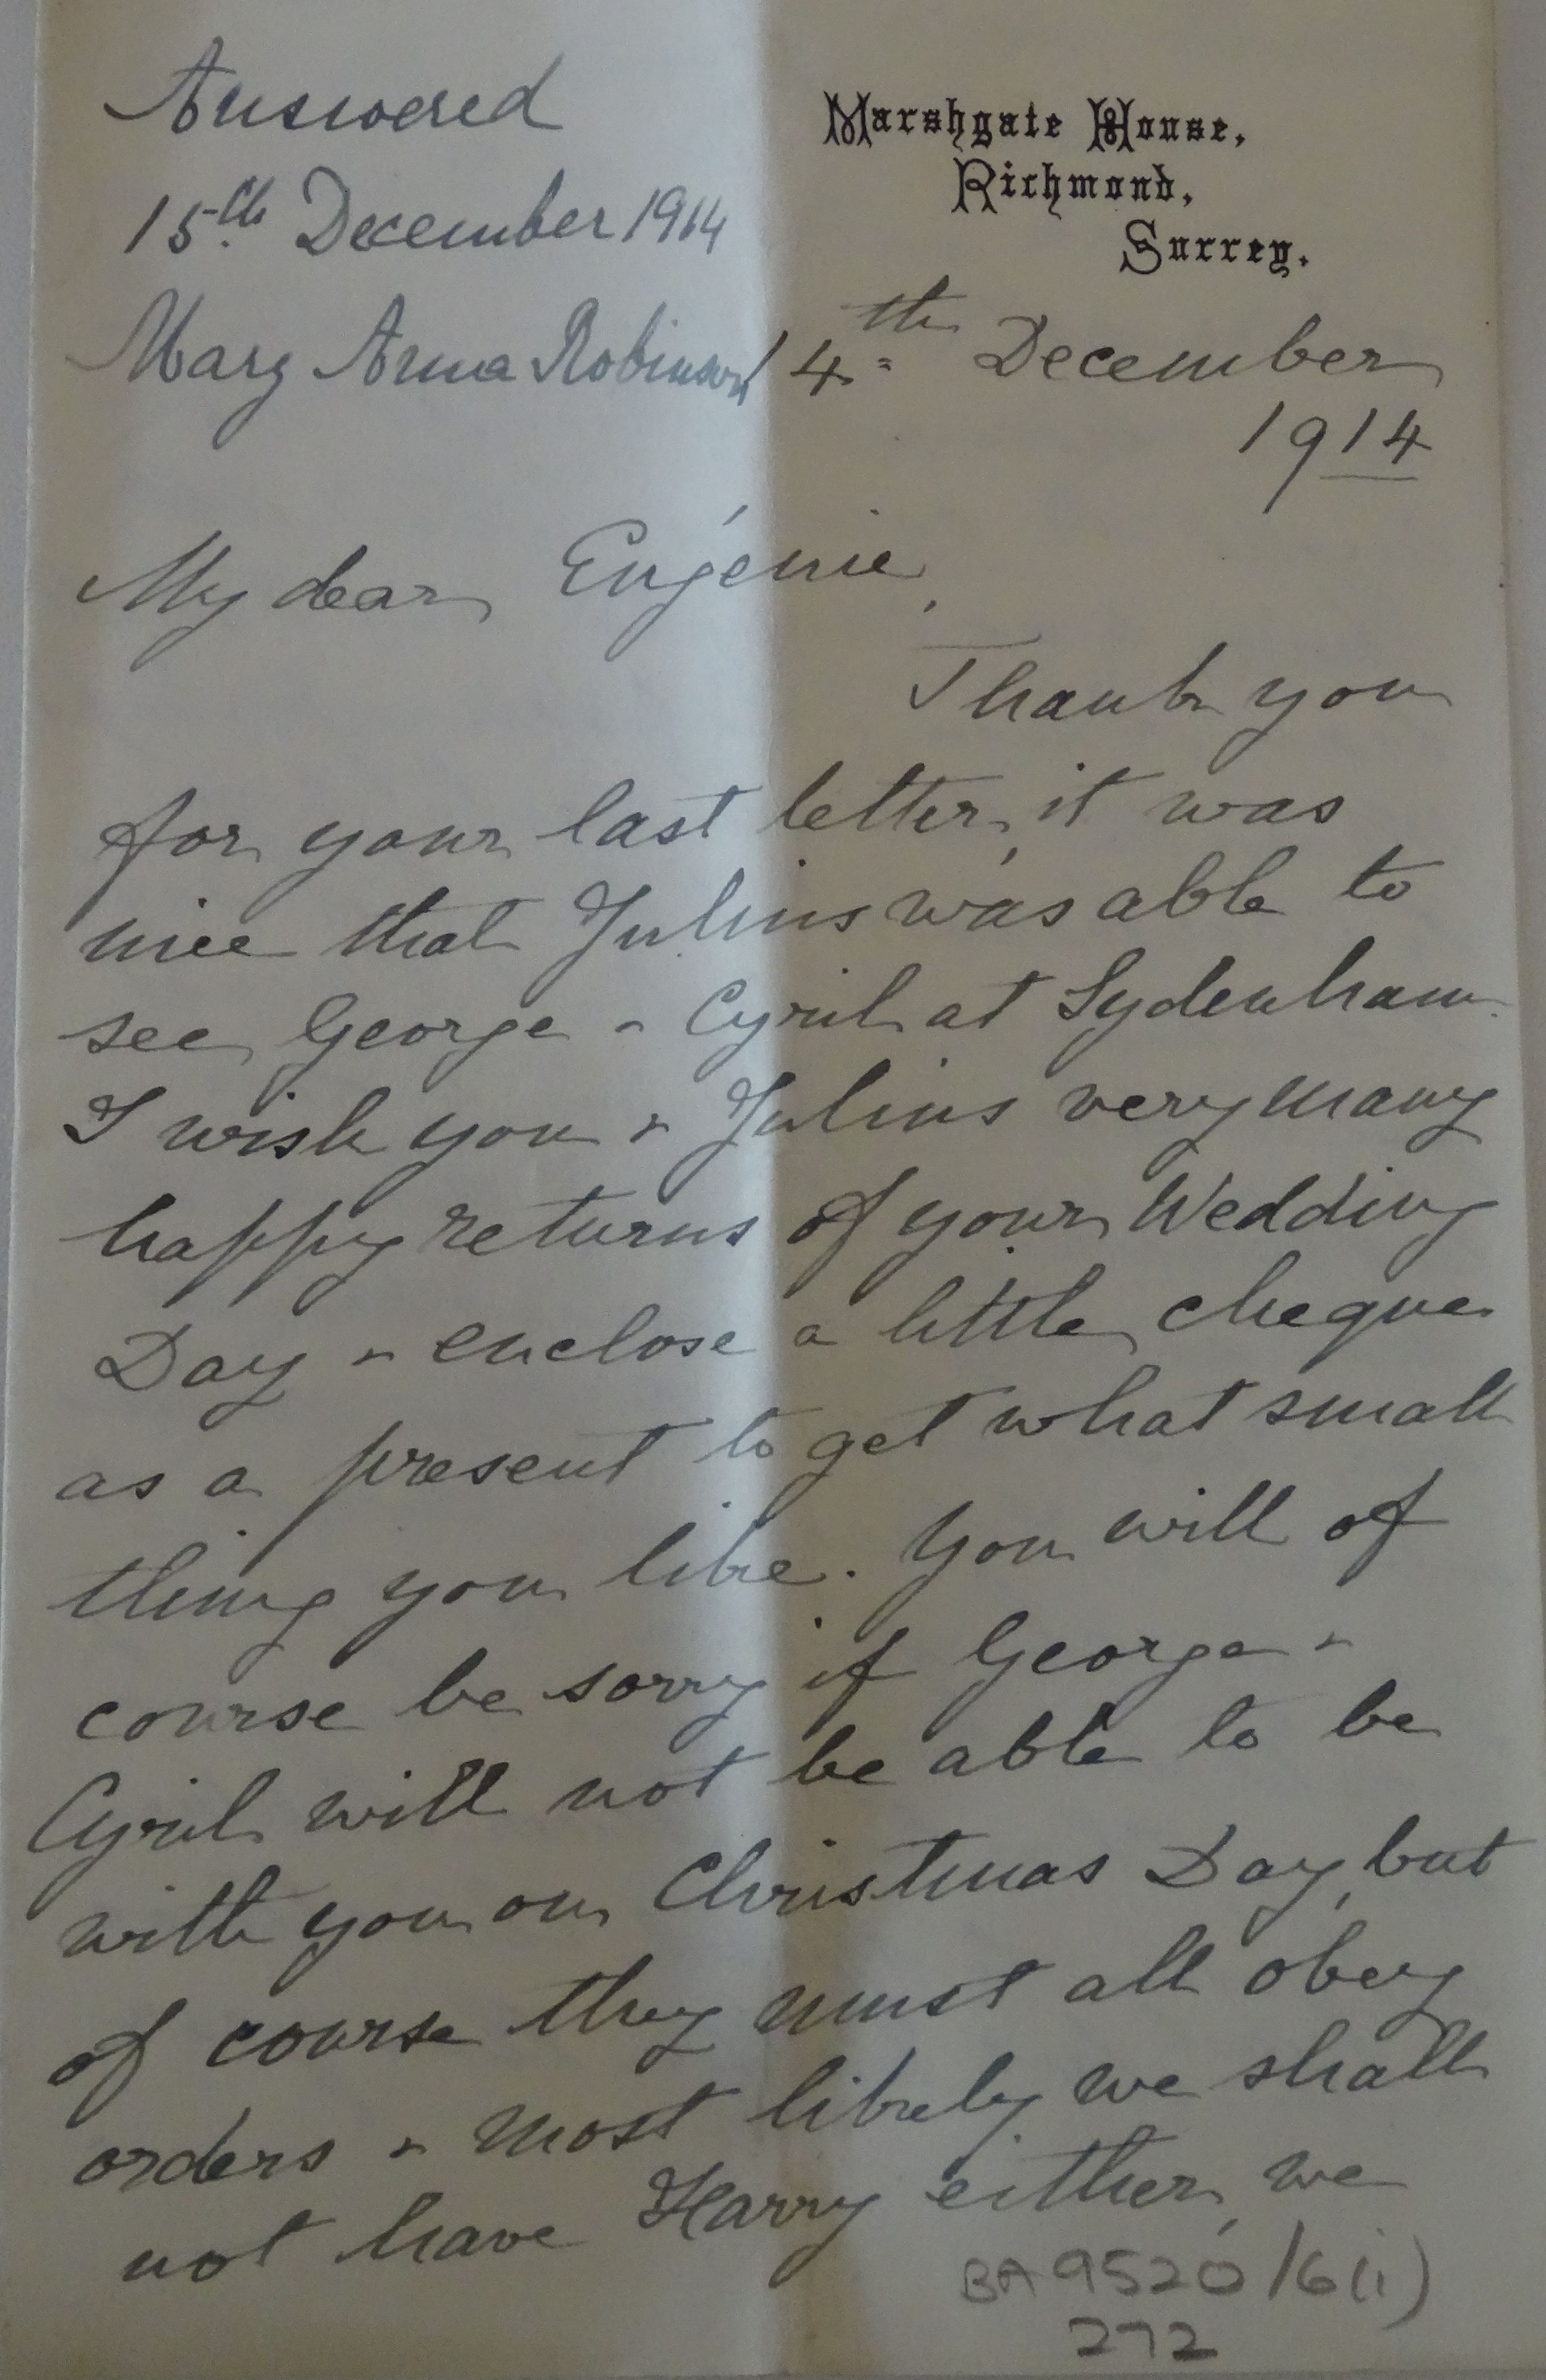 Answered
15th December 1914
Mary Anna Robinson
Marshgate House,
Richmond,
Surrey.
14th December
1914
My dear Eugénie,
Thank you
for your last letter, it was
nice that Julius was able to
see George & Cyril at Sydenham.
I wish you & Julius very many
happy returns of your Wedding
Day & enclose a little cheque
as a present to get what small
thing you like. You will of
course be sorry if George &
Cyril will not be able to be
with you on Christmas Day, but
of course they must all obey
orders & most likely we shall
not have Harry either, we
BA 9520/6(i)
272